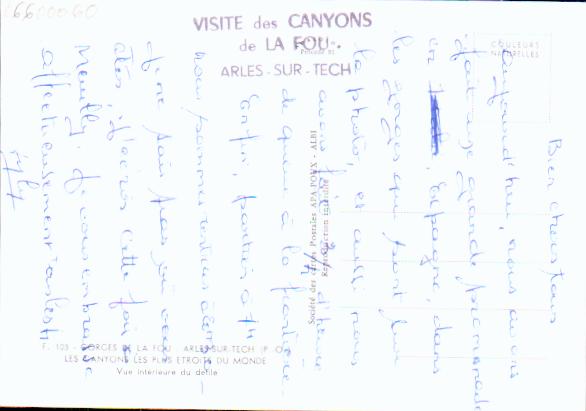 66600060
VISITE des CANYONS
de LA FOU.
ARLES-SUR-TECH
COULEURS
NATURELLES
Bien chers tous
Aujourd'hui, nous avons
fait une grande promenade
en Espagne, dans
les gorges qui sont sur
la photo, et aussi nous
avons fait d'heure
de queue à la frontière.
Enfin, partis à 7h
nous sommes rentrés à
Je ne sais pas si
j'écris cette fois
Je vous embrasse
affectueusement
Société des cartes Postales APA POUX - ALBI
Reproduction interdite
F. 103 - GORGES DE LA FOU ARLES-SUR-TECH (P.-O.)
LES CANYONS LES PLUS ETROITS DU MONDE
Vue intérieure du défilé